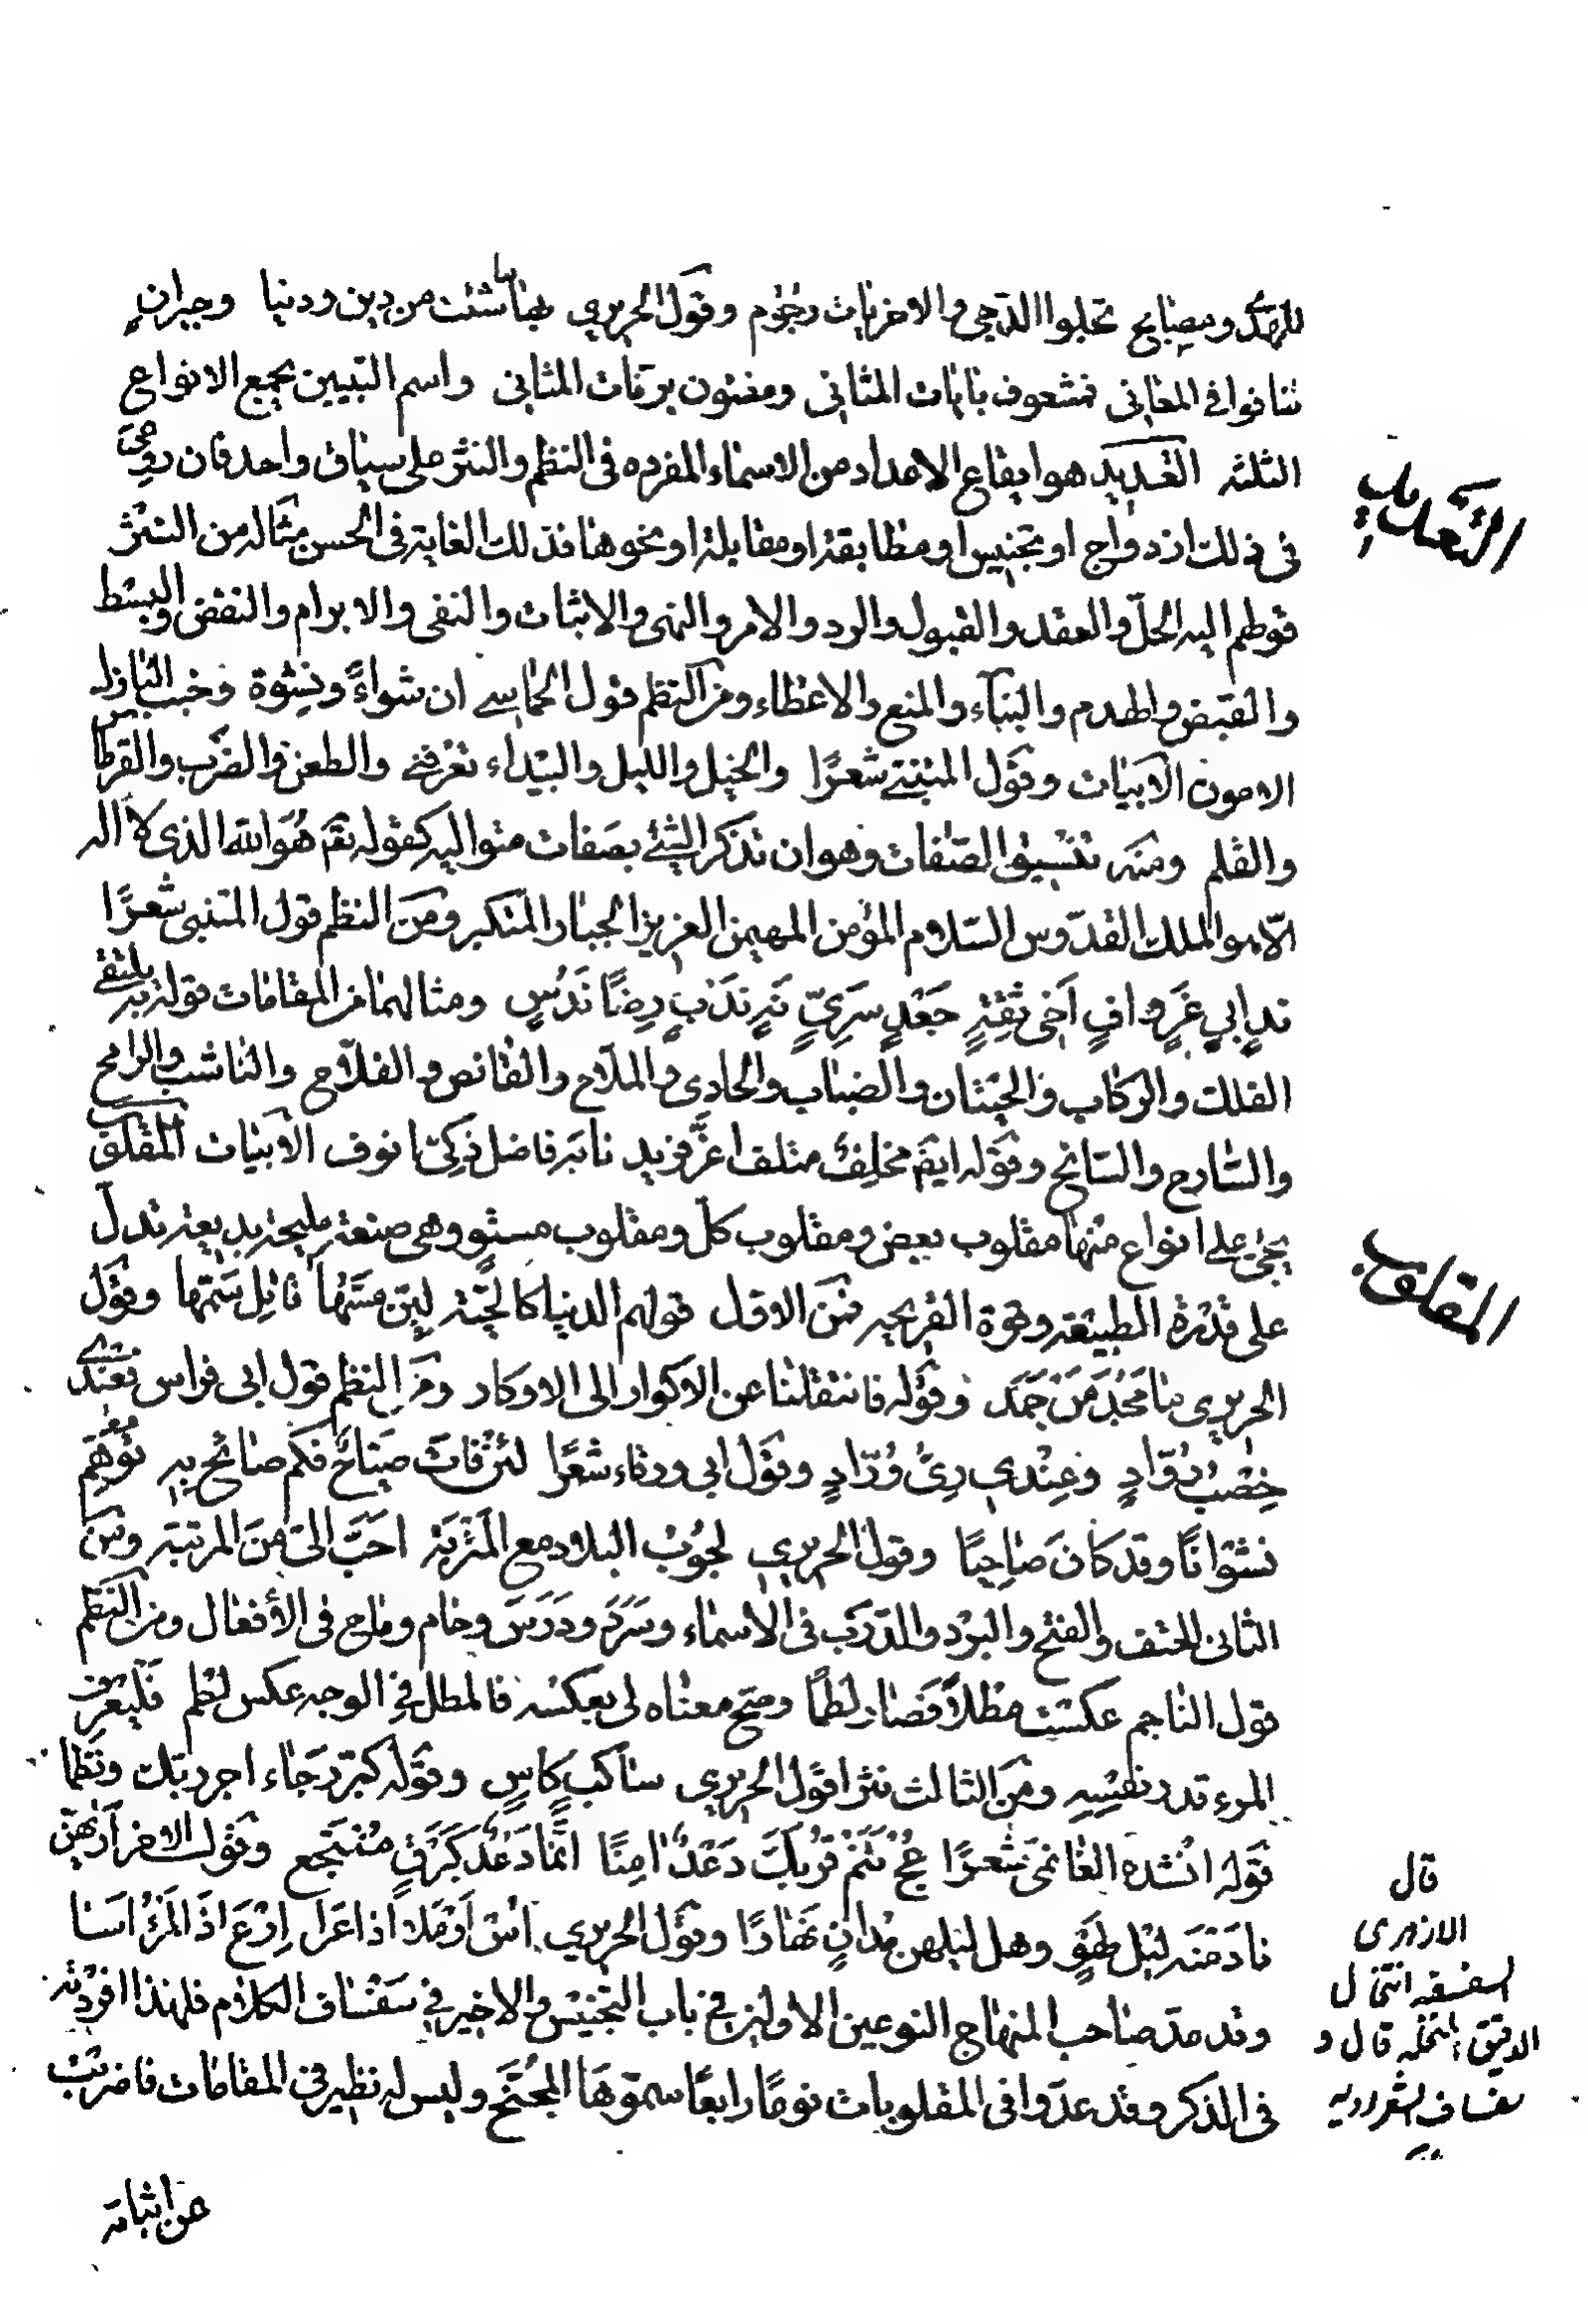 للهدى ومصابيح تجلوا الدجى والاخريات رجوم وقول الحريري بها ما شئت من دين ودنيا وجيران
تنافوا في المعاني فمشعوف بايات المثاني ومفتون برنات المثاني واسم التبيين يجمع الانواع
الثلثه التعديد هو ايقاع الاعداد من الاسماء المفرده في النظم والنثر على سياق واحد فان روعي
في ذلك ازدواج او تجنيس او مطابقة او مقابلة او نحوها فذلك الغاية في الحسن مثاله من النثر
قولهم اليه الحل والعقد والقبول والرد والامر والنهي والاثبات والنفي والابرام والنقض والبسط
والقبض والهدم والبناء والمنع والاعطاء ومن النظم قول الحماسي ان شواءً ونشوة وخبب البازل
الامون الابيات وقول المتنبي شعرًا والخيل والليل والبيداء تعرفني والطعن والضرب والقرطاس
والقلم ومنه تنسيق الصفات وهو ان تذكر الشيء بصفات متواليه كقوله تع هو الله الذي لا اله
الا هو الملك القدوس السلام المؤمن المهيمن العزيز الجبار المتكبر ومن النظم قول المتنبي شعرًا
ندٍ ابيٍ غرٍ وافٍ اخي ثقةٍ جعدٍ سريٍّ نهٍ ندبٍ رضًا ندسٍ ومثالهما من المقامات قوله به يلتقي
الفلك والركاب والحيتان والضباب والحادي والملاح والقانص والفلاح والناشب والرامح
والسارح والسابح وقوله ايضَ مخلفٌ متلف اغرّ فريد نابه فاضل ذكيّ انوف الابيات المقلوب
يجئ على انواع منها مقلوب بعض ومقلوب كل ومقلوب مستوٍ وهي صنعة مليحة بديعة تدل
على قدرة الطبيعة وقوة القريحه فمن الاول قولهم الدنيا كالحيّة ليّن مسّها قاتل سمّها وقول
الحريري ما مجد من جمد وقوله فانتقلنا عن الاكوار الى الاوكار ومن النظم قول ابي فراس فعندي
خصب روّادٍ وعندي ريّ ورّادٍ وقول ابي ورقاء شعرًا لئن فات صباحٌ فكم صائح به توهّم
نشوانًا وقد كان صاحيًا وقول الحريري لجوب البلاد مع المتربة احبّ اليّ من المرتبة ومن
الثاني الحتف والفتح والبرد والدرب في الاسماء وسرد ودرس وحام وماح في الأفعال ومن النظم
قول الناجم عكست مطلاً فصار لطمًا وصح معناه لي بعكسه فالمطل في الوجه عكس لطم فليعرف
المرء قدر نفسه ومن الثالث نثرا قول الحريري ساكب كاسٍ وقوله كبّر رجاء اجر ربك ونظما
قوله انشده الغانمي شعرًا عج تنم قربك دعدٌ امنًا انّما دعد كبرقٍ منتجع وقول الاخر اراهنّ
نادمنه ليل لهوٍ وهل ليلهن مدانٍ نهارًا وقول الحريري اس ارملا اذا عرا ارع اذا المرؤ اسا
وقد عدّ صاحب المنهاج النوعين الاولين في باب التجنيس والاخير في سفساف الكلام فلهذا افردته
في الذكر وقد عدّوا في المقلوبات نوعًا رابعًا سموها المجنّح وليس له نظير في المقامات فاضربت
عن اثباته
التعديد
المقلوب
قال
الازهري
السفسفه انتخال
الدقيق المنخله قال و
سفساف الشعر رديه